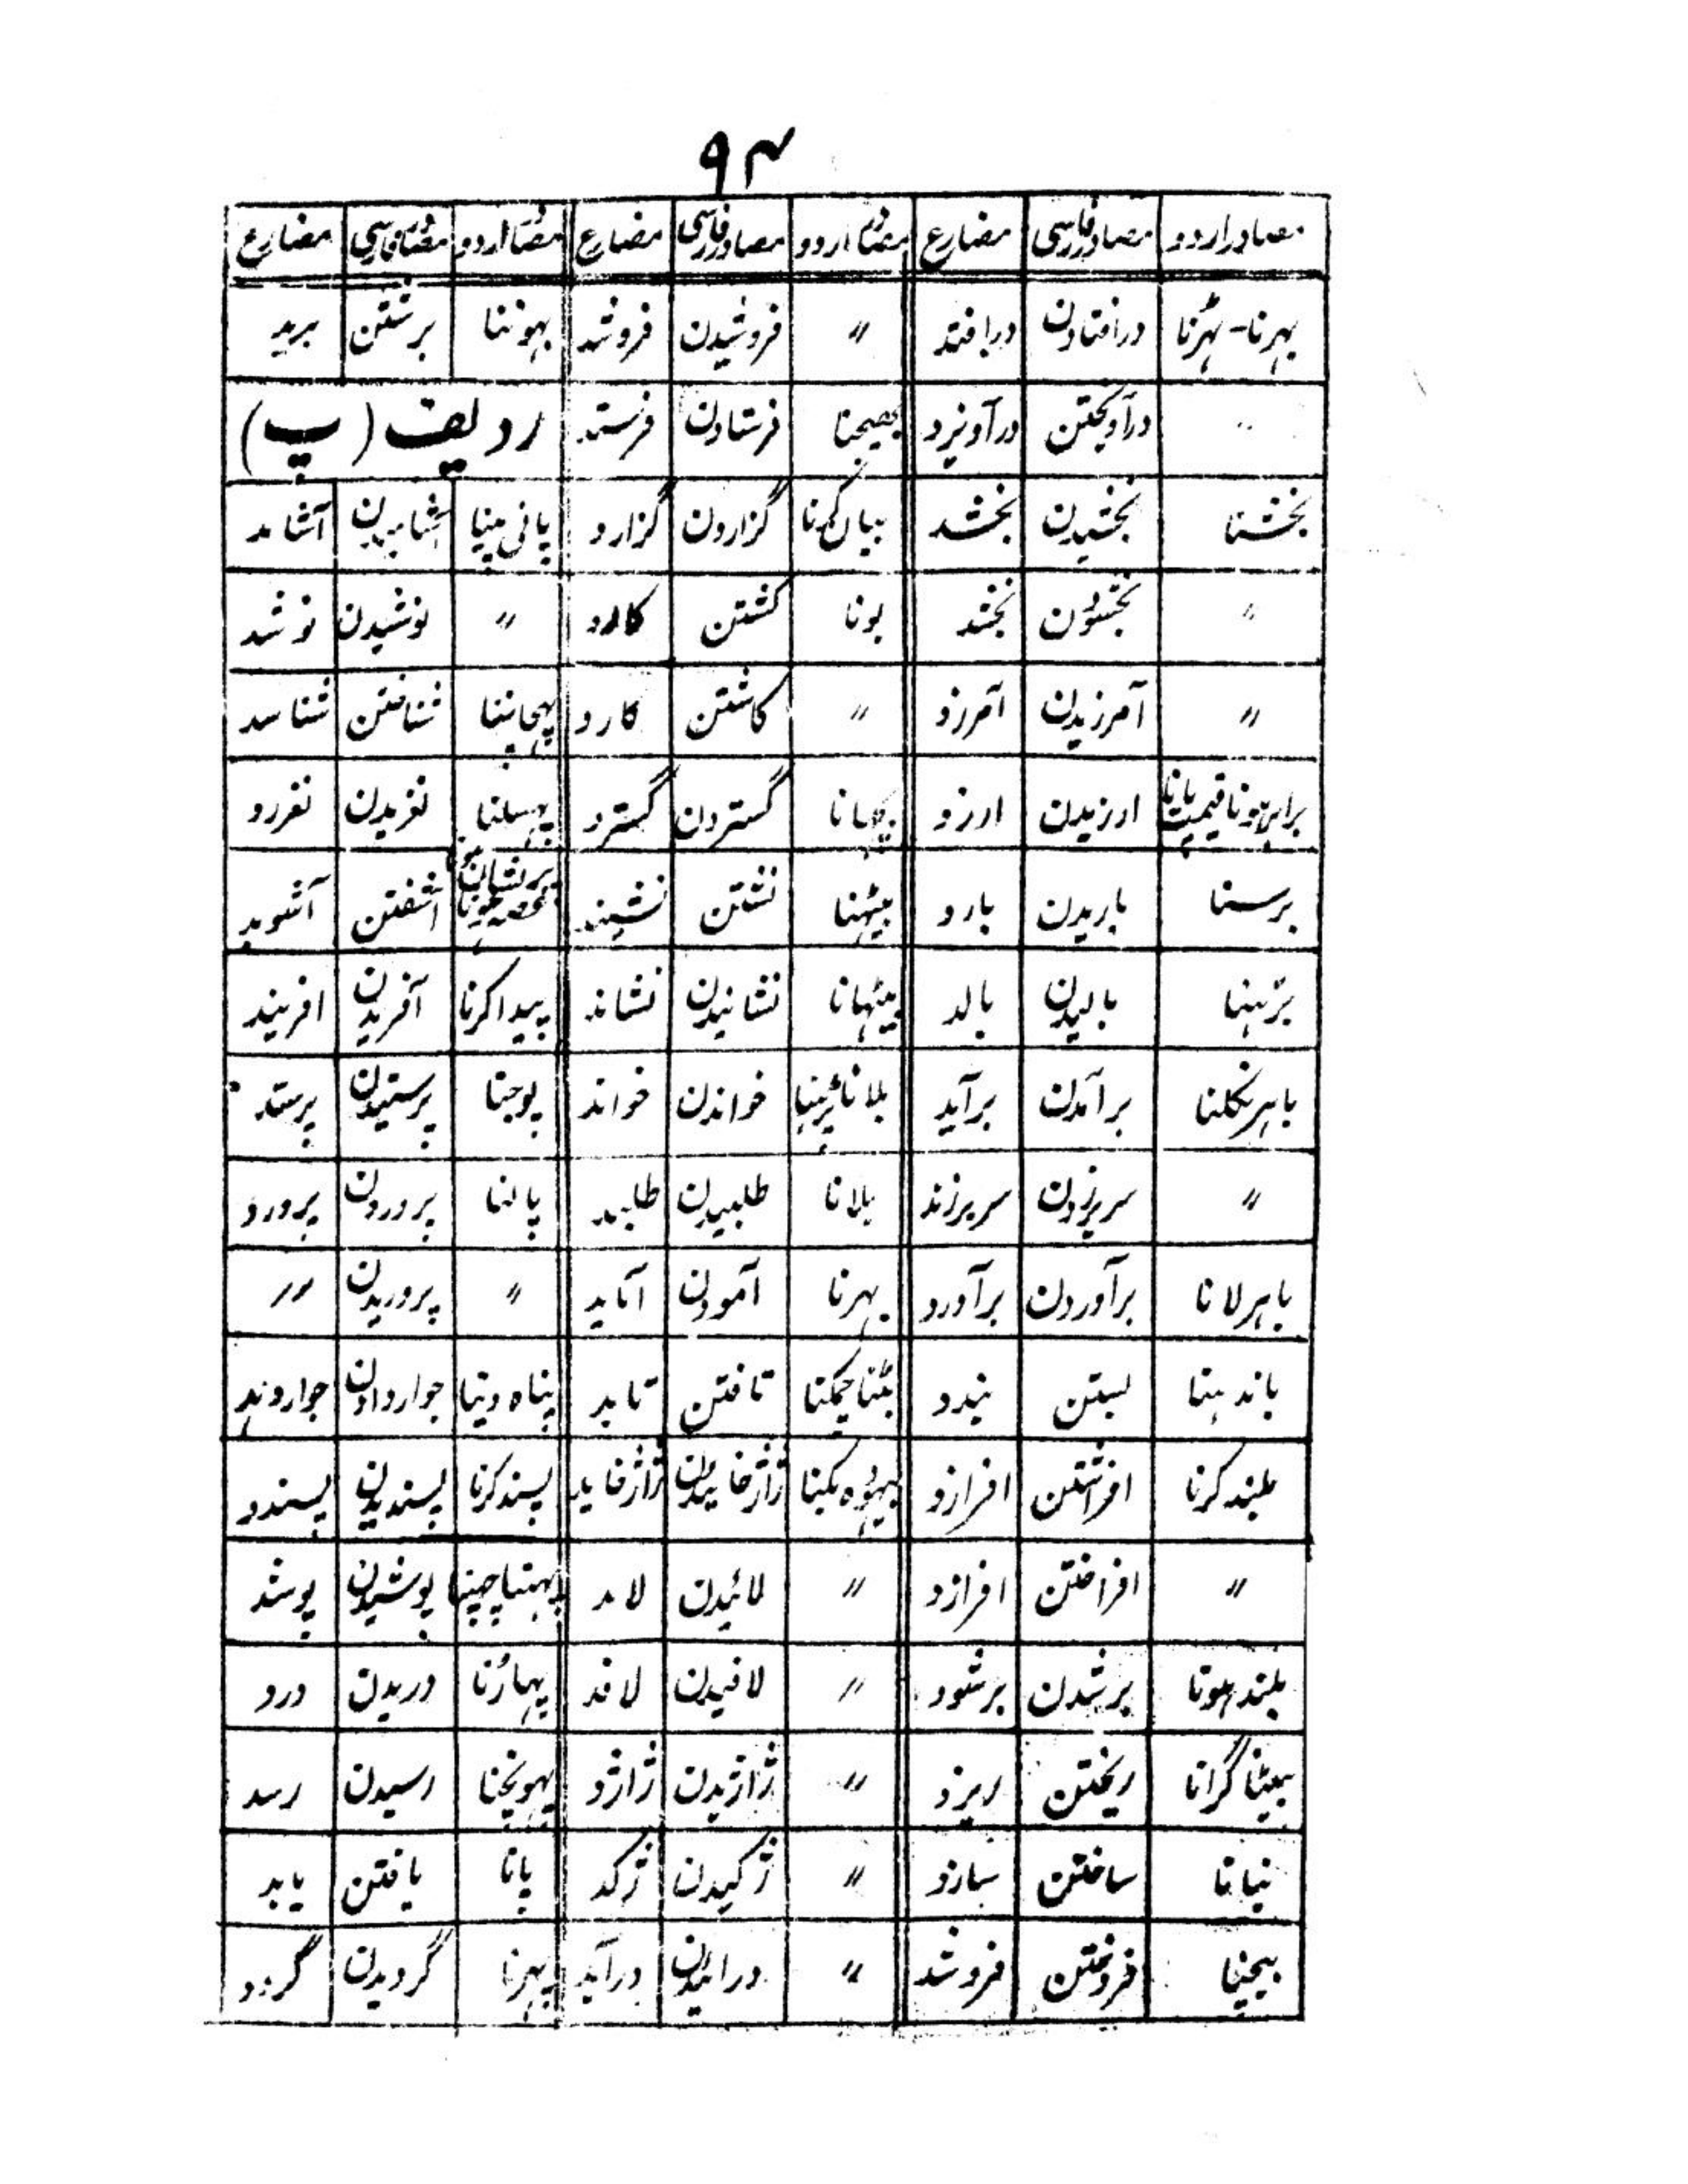 ۹۴
مصادر اردو مصادر فارسی مضارع مصادر اردو مصادر فارسی مضارع مصادر اردو مصادر فارسی مضارع
بہرنا - بہڑنا درافتادن درافتد 〃 فروشیدن فروشد بہوننا برشتن برید
〃 درآویختن درآویزد بھیجنا فرستادن فرستد ردیف (پ)
بخشنا بخشیدن بخشد بیان کرنا گزاردن گزارد پانی پینا آشامیدن آشامد
〃 بخشودن بخشد بونا کشتن کارد 〃 نوشیدن نوشد
〃 آمرزیدن آمرزد 〃 کاشتن کارد پہچاننا شناختن شناسد
برابر ہونا قیمت پانا ارزیدن ارزد بچہانا گستردن گسترد پہسلنا لغزیدن لغزد
برسنا باریدن بارد بیٹہنا نشستن نشیند پریشان ہونا غصہ ہونا آشفتن آشوبد
بڑہنا بالیدن بالد بیٹہانا نشانیدن نشاند پیدا کرنا آفریدن افریند
باہر نکلنا برآمدن برآید بلانا پڑہنا خواندن خواند پوجنا پرستیدن پرستد
〃 سربرزدن سربرزند بلانا طلبیدن طلبد پالنا پروردن پرورد
باہر لانا برآوردن برآورد بہرنا آمودن آماید 〃 پروریدن 〃
باندہنا بستن بندد بٹنا چمکنا تافتن تابد پناہ دینا جوار دادن جوار دہد
بلند کرنا افراشتن افرازد بیہودہ بکنا ژاژخاییدن ژاژخاید پسند کرنا پسندیدن پسندد
〃 افراختن افرازد 〃 لائیدن لاید پہننا چھپنا پوشیدن پوشد
بلند ہونا برشدن برشود 〃 لافیدن لافد پہاڑنا دریدن درد
بہینا گرانا ریختن ریزد 〃 ژاژیدن ژاژد پہونچنا رسیدن رسد
بنانا ساختن سازد 〃 ژکیدن ژکد پانا یافتن یابد
بیچنا فروختن فروشد 〃 درائیدن درآید پہرنا گردیدن گردد